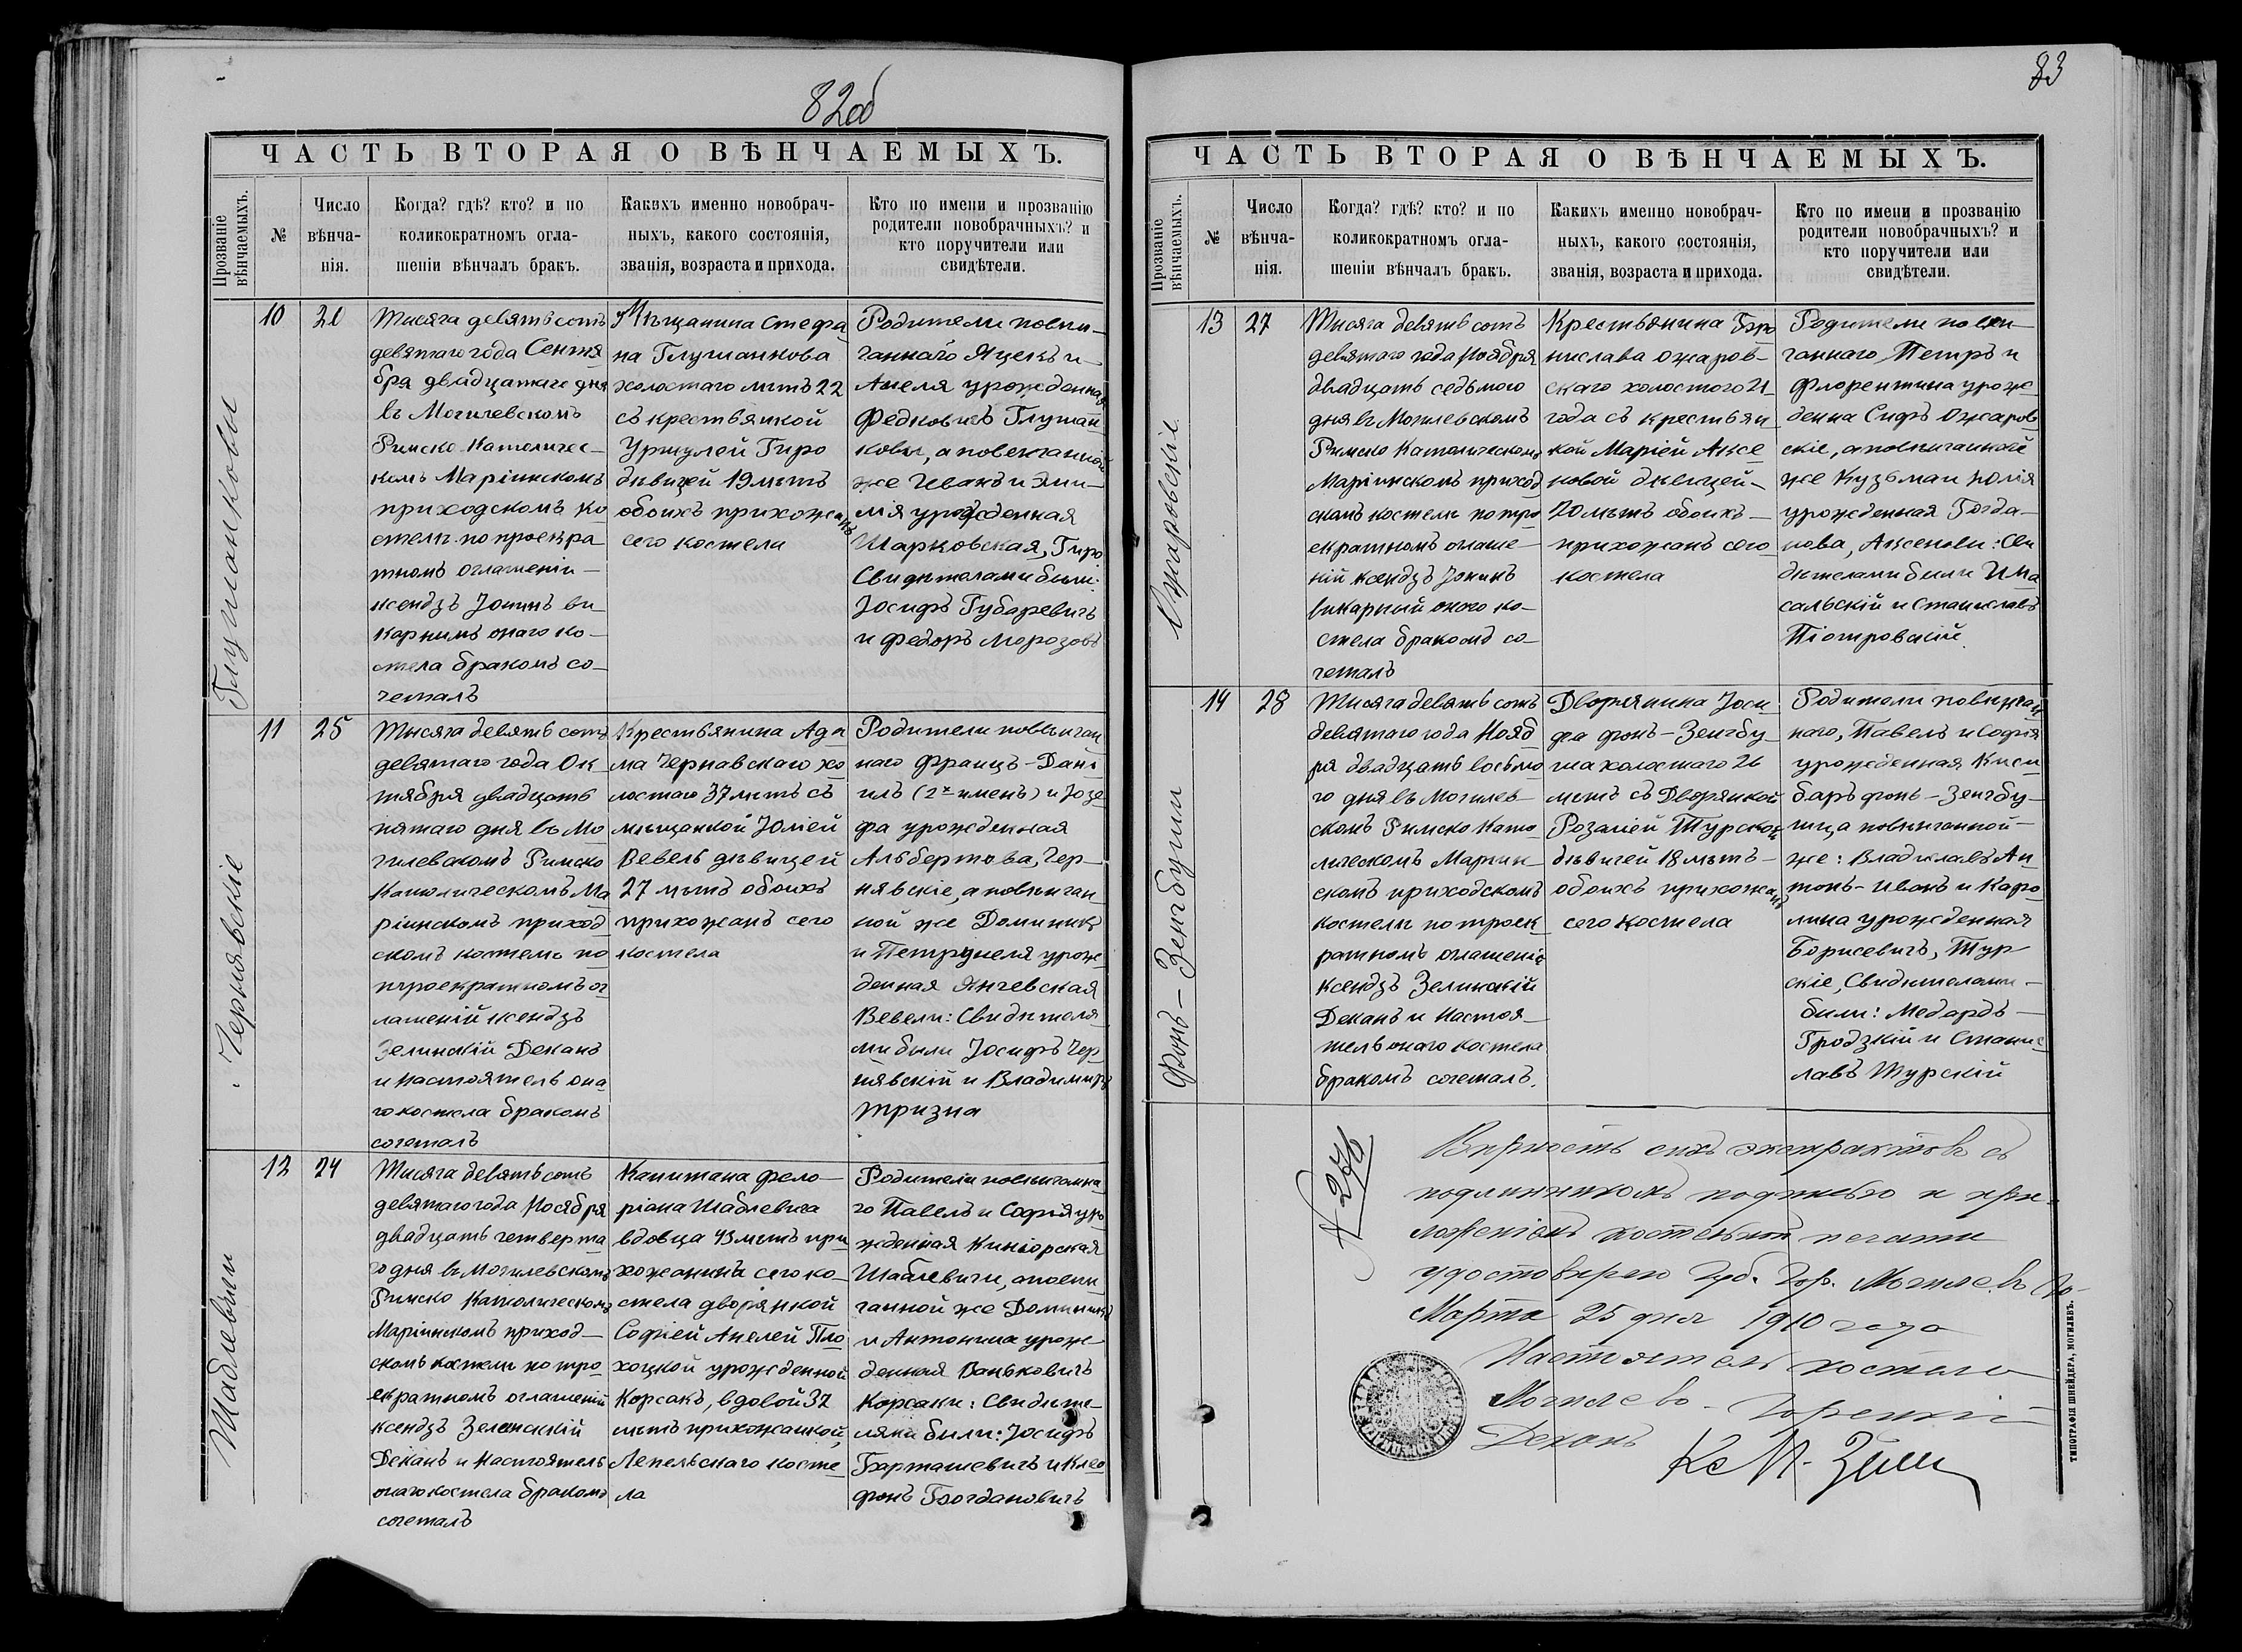 82об
ЧАСТЬ ВТОРАЯ О ВѢНЧАЕМЫХЪ.
Прозваніе вѣнчаемыхъ.
№
Число вѣнча-
нія.
Когда? гдѣ? кто? и по
коликократномъ огла-
шеніи вѣнчалъ бракъ.
Какихъ именно новобрач-
ныхъ, какого состоянія,
званія, возраста и прихода.
Кто по имени и прозванію
родители новобрачныхъ? и
кто поручители или
свидѣтели.
Глушанковы
10
20
Тысяча девятьсотъ
девятаго года Сентя
бря двадцатаго дня
въ Могилевскомъ
Римско-Католичес-
комъ Маріинскомъ
приходскомъ ко
стелѣ по троекра
тномъ оглашеніи
ксендзъ Іонинъ ви
карнымъ онаго ко-
стела бракомъ со-
четалъ
Мѣщанина Стефа
на Глушанкова
холостаго лѣтъ 22
съ крестьянкой
Уршулей Гиро
дѣвицей 19 лѣтъ
обоихъ прихожанъ
сего костела
Родители повѣн-
чаннаго Яцекъ и
Анеля урожденная
Федковичъ Глушан
ковы, а повенчанной
же Иванъ и Эми-
лія урожденная
Шарковская, Гиро
Свидѣтелами были:
Іосифъ Губаревичъ
и Федоръ Морозовъ
Чернявскіе
11
25
Тысяча девятьсотъ
девятаго года Ок
тября двадцать
пятаго дня въ Мо
гилевскомъ Римско
Католическомъ Ма
ріинскомъ приход
скомъ костелѣ по
троекратномъ ог
лашеній ксендзъ
Зелинскій Деканъ
и настоятель она
го костела бракомъ
сочеталъ
Крестьянина Ада
ма Чернавскаго хо
лостаго 37 лѣтъ съ
мѣщанкой Юліей
Вевель дѣвицей
27 лѣтъ обоихъ
прихожанъ сего
костела
Родители повѣнчан
наго Францъ-Дані
илъ (2х именъ) и Юзе
фа урожденная
Альбертова, Чер-
нявскіе, а повѣнчан
ной же Доминикъ
и Петрунеля урож
денная Янчевская
Вевели: Свидѣтеля
ми были Іосифъ Чер
нявскій и Владиміръ
Тризна
Шаблевичи
12
24
Тысяча девятьсотъ
девятаго года Ноября
двадцать четверта
го дня въ Могилевскомъ
Римско Католическомъ
Маріинскомъ приход-
скомъ костелѣ по тро
екратномъ оглашеній
ксендзъ Зеленскій
Деканъ и Настоятель
онаго костела бракомъ
сочеталъ
Капитана Фело-
ріана Шаблевича
вдовца 43 лѣтъ при
хожанина сего ко-
стела дворянкой
Софіей Анелей Пло
хоцкой урожденной
Корсакъ, вдовой 37
лѣтъ прихожанкой,
Лепельскаго косте
ла
Родители повѣнчанна
го Павелъ и Софія уро
жденная Книгорская
Шаблевичи, а повѣн
чанной же Доминикъ
и Антонина урож-
денная Ваньковичъ
Корсаки: Свидѣте-
лями были: Іосифъ
Барташевичъ и Клео
фонъ Богдановичъ
83
ЧАСТЬ ВТОРАЯ О ВѢНЧАЕМЫХЪ.
Прозваніе вѣнчаемыхъ.
№
Число вѣнча-
нія.
Когда? гдѣ? кто? и по
коликократномъ огла-
шеніи вѣнчалъ бракъ.
Какихъ именно новобрач-
ныхъ, какого состоянія,
званія, возраста и прихода.
Кто по имени и прозванію
родители новобрачныхъ? и
кто поручители или
свидѣтели.
Ожаровскіе
13
27
Тысяча девятьсотъ
девятаго года Ноября
двадцать седьмого
дня въ Могилевскомъ
Римско Католическомъ
Маріинскомъ приход
скомъ костелѣ по тро
екратномъ оглаше-
ній ксендзъ Іонинъ
викарный оного ко-
стела бракомъ со-
четалъ
Крестьянина Бро
нислава Ожаров-
скаго холостого 21
года съ крестьян
кой Маріей Аксе
новой дѣвицей-
20 лѣтъ обоихъ-
прихожанъ сего
костела
Родители повѣн-
чаннаго Петръ и
Флорентина урож
денна Сифъ Ожаров
скіе, а повѣнчанной
же Кузьма и Юлія
урожденная Богда-
нова, Аксеновы: Сви
дѣтелами были
сальскій и Станиславъ
Піотровскій
Фонъ-Зенгбуши
14
28
Тысяча девятьсотъ
девятаго года Нояб
ря двадцать восьмо
го дня въ Могилев-
скомъ Римско Като
лическомъ Маріин
скомъ приходскомъ
костелѣ по троек
ратномъ оглашеніе
ксендзъ Зелинскій
Деканъ и Настоя-
тель онаго костела
бракомъ сочеталъ.
Дворянина Іоси
фа фонъ-Зенгбу-
ша холостаго 26
лѣтъ съ Дворянкой
Розаліей Турской
дѣвицей 18 лѣтъ-
обоихъ прихожанъ
сего костела
Родители повѣнчан
наго, Павелъ и Софія
урожденная Киси
баръ фонъ-Зенгбу-
ша повѣнчанной-
же: Владиславъ Ан
тонъ-Иванъ и Каро
лина урожденная
Борисевичъ, Тур
скіе, Свидѣтелами-
были: Медардъ-
Гродзкій и Станис
лавъ Турскій
N 276
Вѣрность сихъ экстрактовъ съ
подлинникомъ подписью и при-
ложеніемъ костельной печати
удостовѣряю Губ. Гор. Могилевъ
Марта 25 дня 1910 года
Настоятель костела
Могилево-Горецкій
Деканъ
ТИПОГРАФІЯ ШНЕЙДЕРА, МОГИЛЕВЪ.